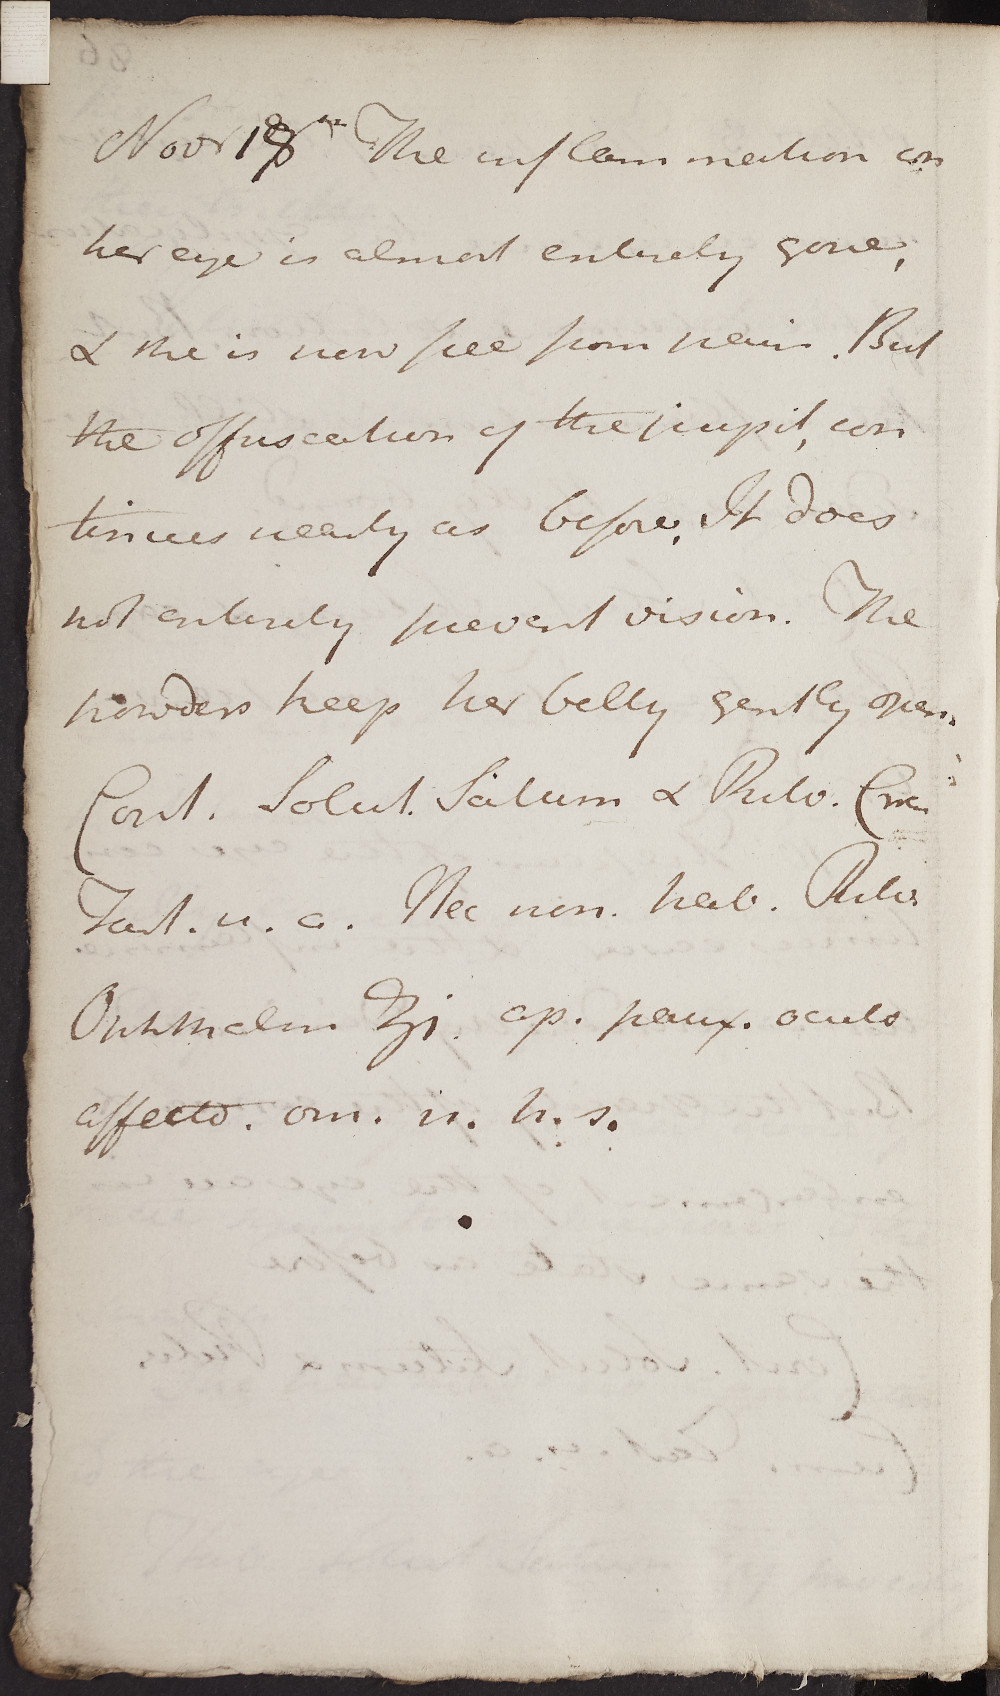 Novr 18th The inflammation on
her eye is almost entirely gone,
& she is now free from pain. But
the offuscation of the pupil, con
tinues nearly as before. It does
not entirely prevent vision. The
powders keep her belly gently open.
Cont. Solut. Saturn & Pulv. Crem
Tart. u. a. Nec non. hab. Pulv.
Ophthalm ʒj. ap. paux. oculo
affecto. om. n. h. s.